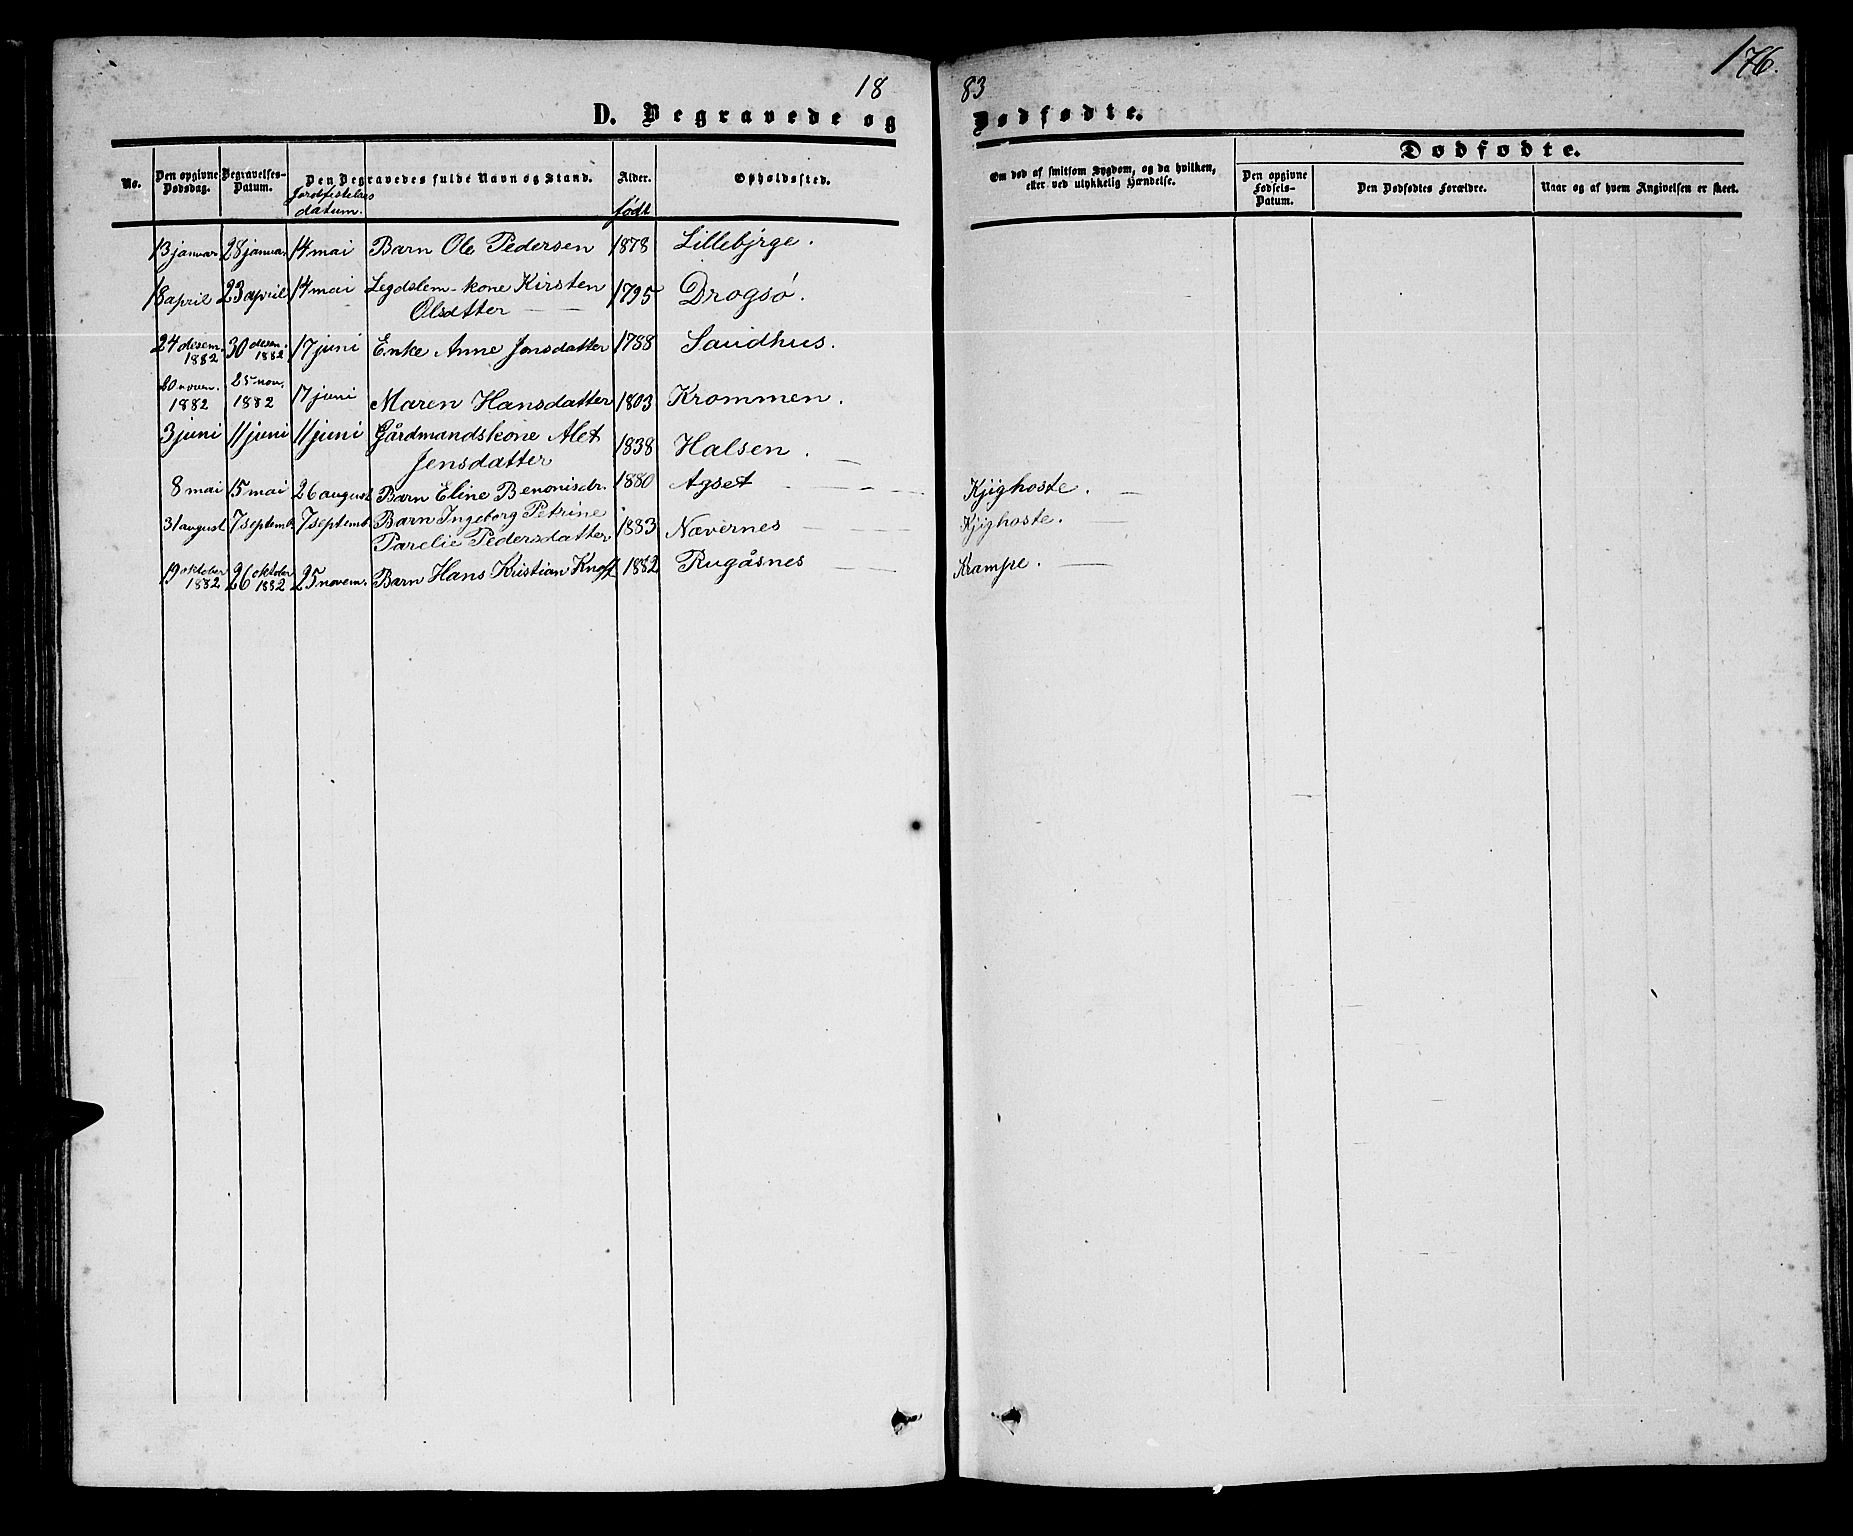 18 83
176.
D. Begravede og Dødfødte.
No.
Den opgivne Dødsdag.
Begravelses-Datum.
Jordfæstelses datum.
Den Begravedes fulde Navn og Stand.
Alder. født
Opholdssted.
Om død af smitsom Sygdom, og da hvilken, eller ved ulykkelig Hændelse.
Dødfødte.
Den opgivne Fødsels-Datum.
Den Dødfødtes Forældre.
Naar og af hvem Angivelsen er skeet.
13 januar 28 januar 14 mai Barn Ole Pedersen 1878 Lillebjrge.
18 april 23 april 14 mai Legdslem-kone Kirsten 1795 Drogsø.
Olsdatter
24 desem. 1882 30 desem. 1882 17 juni Enke Anne Jonsdatter 1788 Saudhus.
20 novem. 1882 25 nov. 1882 17 juni Maren Hansdatter 1803 Krommen.
3 juni 11 juni 11 juni Gårdmandskone Alet 1838 Halsen.
Jensdatter
8 mai 15 mai 26 august Barn Eline Benonisdr. 1880 Agset Kjighoste.
31 august 7 septemb. 7 septemb. Barn Ingeborg Petrine 1883 Nævernes Kjighoste.
Parelie Pedersdatter
19 oktober 1882 26 oktober 1882 25 novem. Barn Hans Kristian Knoff 1882 Rugåsnes Krampe.